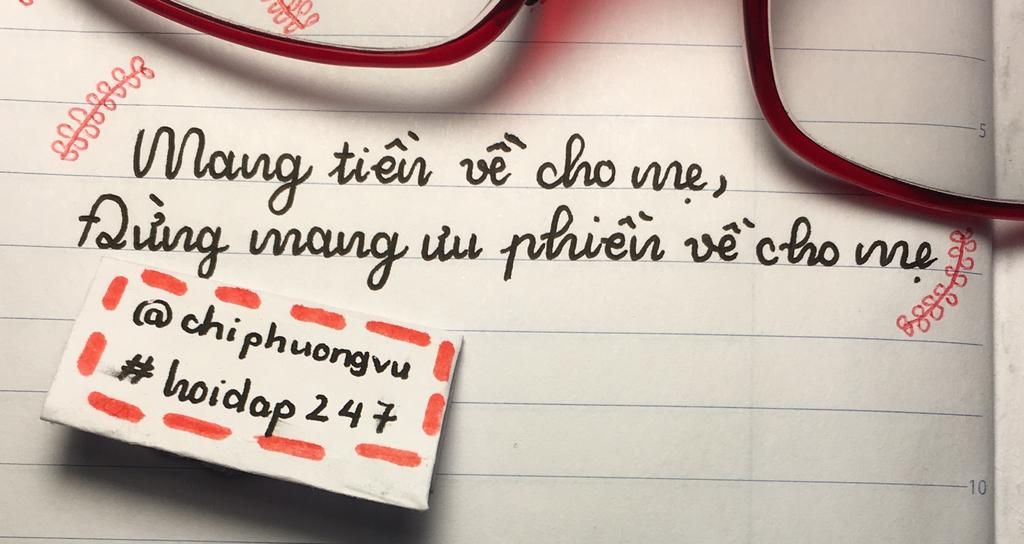 Mang tiền về cho mẹ,
Đừng mang ưu phiền về cho mẹ
@chiphuongvu
#hoidap247
5
10